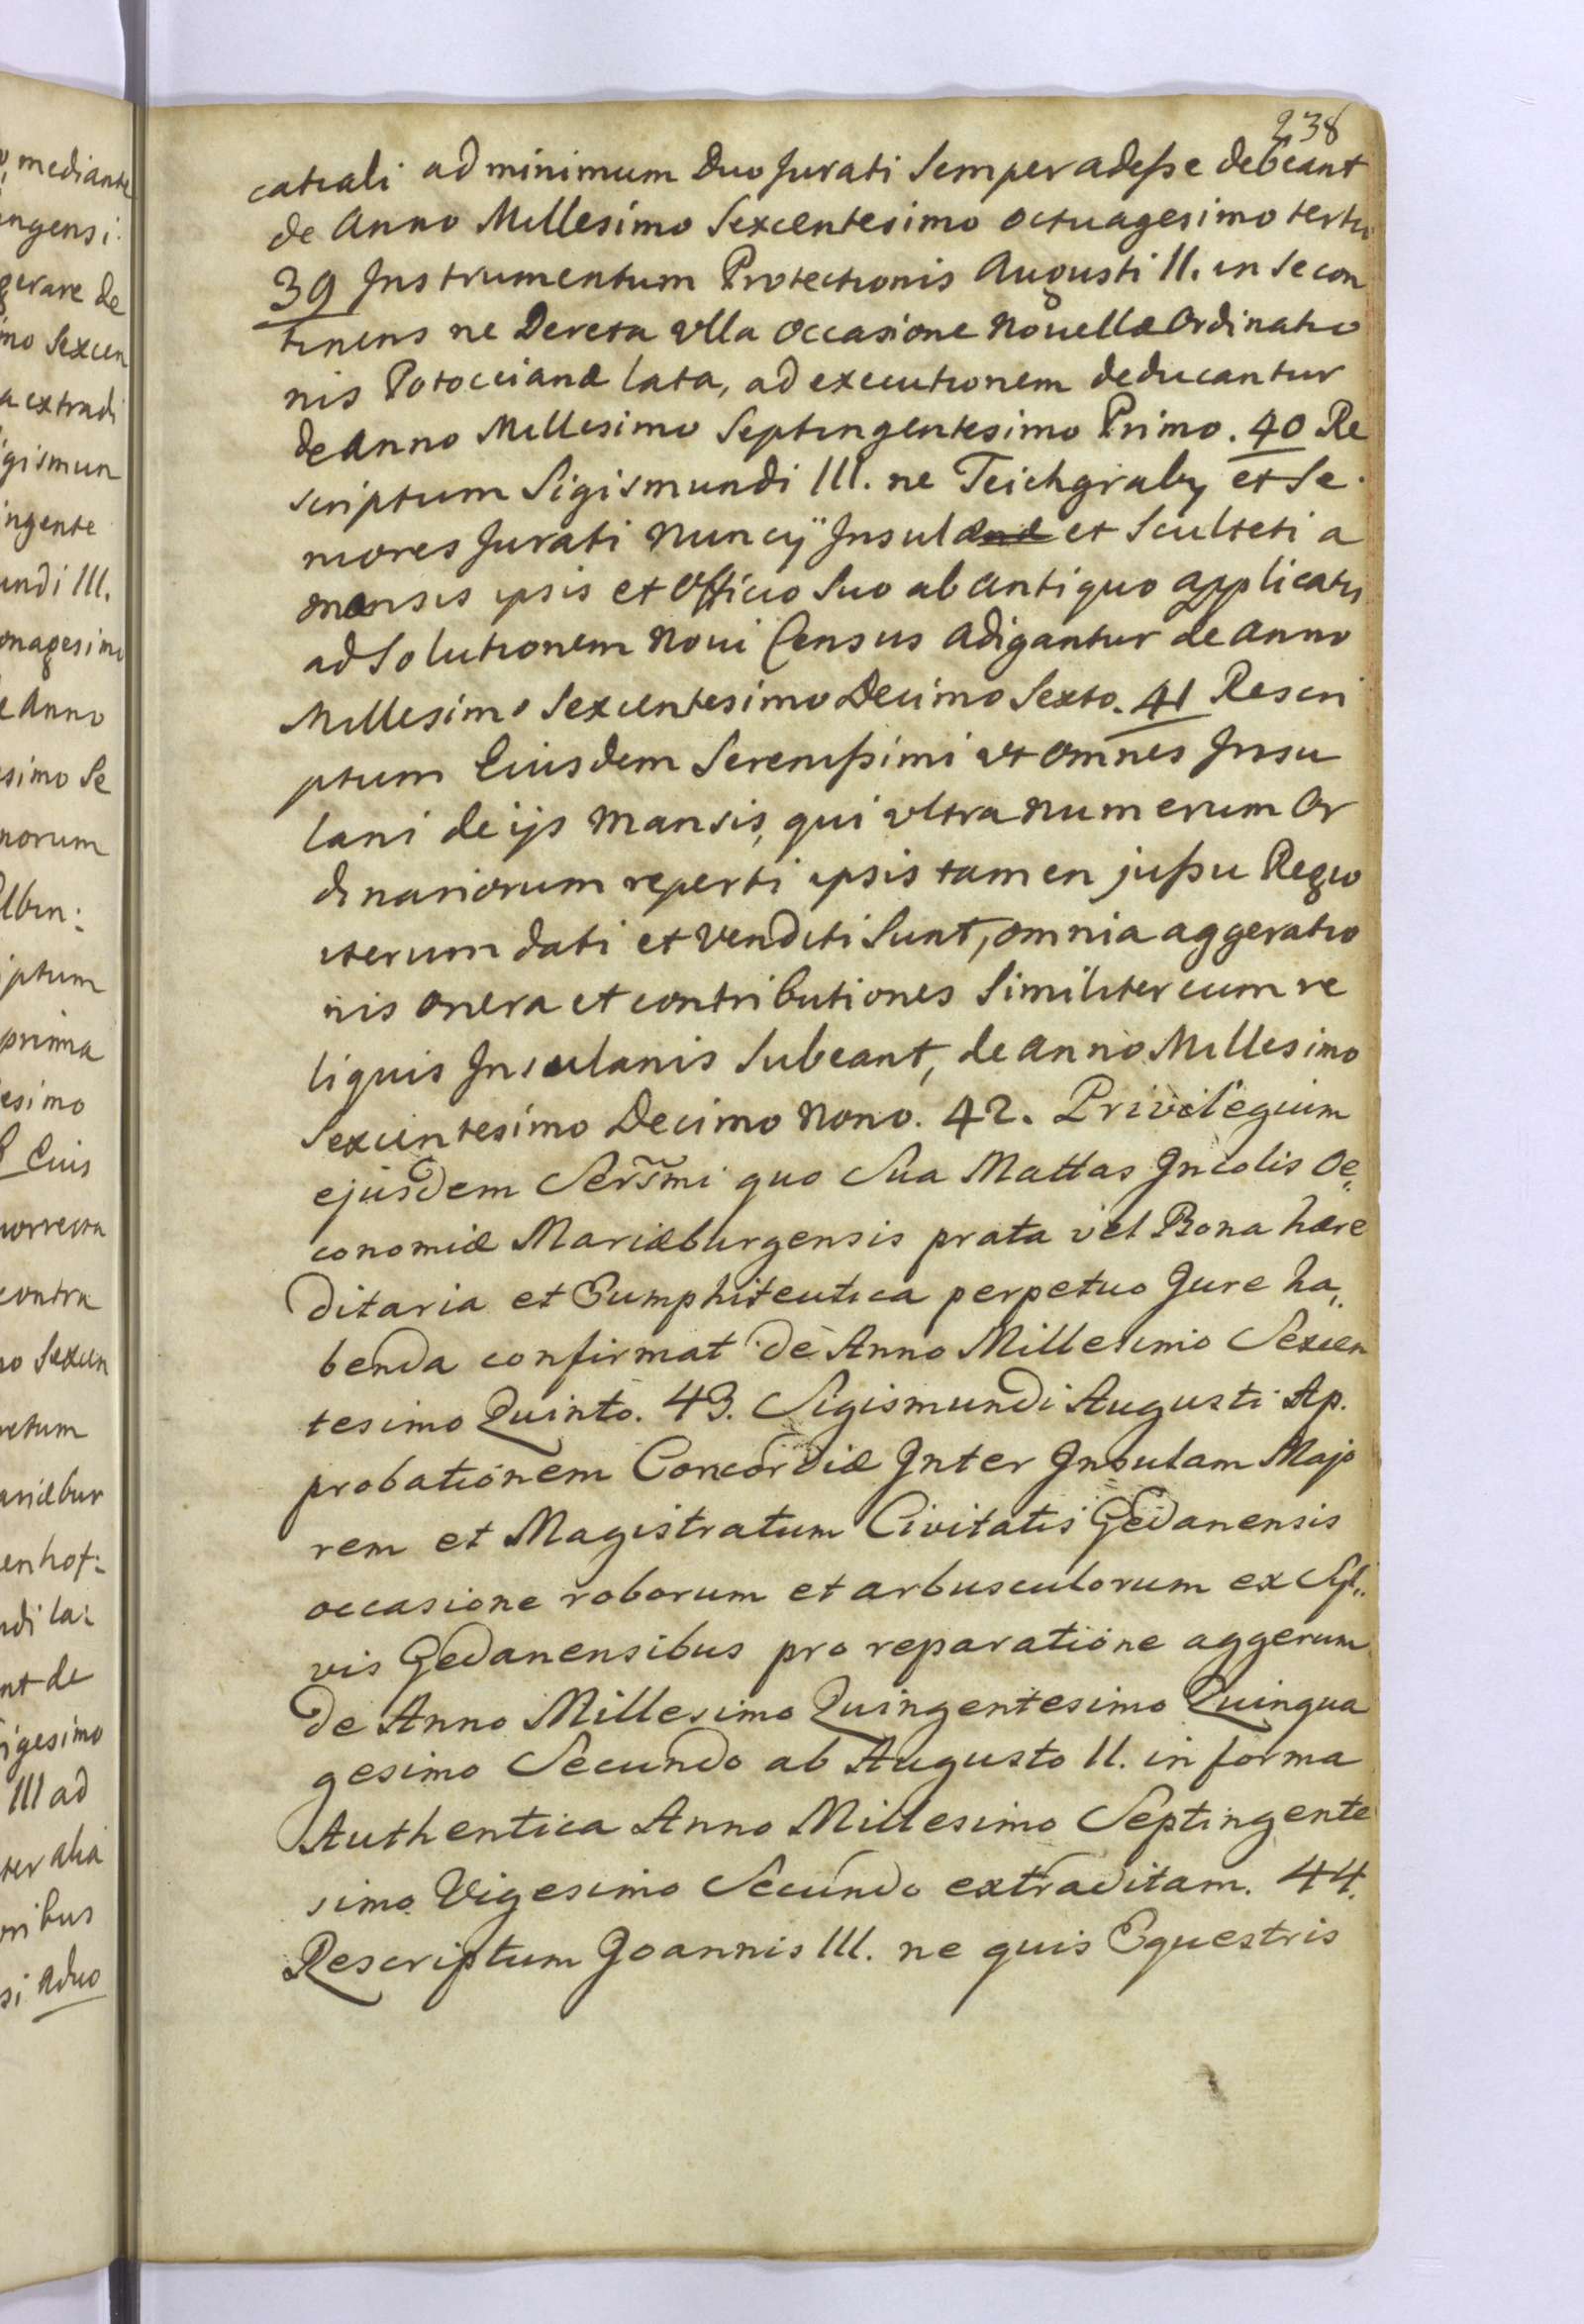 238
catiali ad minimum Duo Jurati Semper adesse debeant
de Anno Millesimo Sexcentesimo Octuagesimo tertio
39 Instrumentum Protectionis Augusti II. in se con
tinens ne Decreta ulla Occasione Nouellæ Ordinatio
nis Potoccianæ lata, ad executionem deducantur
de Anno Millesimo Septingentesimo Primo. 40 Re
scriptum Sigismundi III. ne Teichgräby et Se
niores Jurati Nuncÿ Insulæ et Sculteti a
mansis ipsis et Officio Suo ab antiquo applicatis
ad Solutionem Noui Census Adigantur de Anno
Millesimo Sexcentesimo Decimo Sexto. 41 Rescri
ptum Eiusdem Serenissimi ut omnes Insu
lani de ijs Mansis, qui ultra Numerum Or
dinariorum reperti ipsis tamen jussu Regio
iterum dati et venditi Sunt, omnia aggeratio
nis onera et contributiones Similiter cum re
liquis Insulanis Subeant, de Anno Millesimo
Sexcentesimo Decimo Nono. 42. Privilegium
ejusdem Serm̃i quo Sua Mattas Incolis Oe„
conomiæ Mariæburgensis prata vel Bona hære
ditaria et Eumphiteutica perpetuo Jure ha„
benda confirmat de Anno Millesimo Sexcen
tesimo Quinto. 43. Sigismundi Augusti Ap.
probationem Concordiæ Inter Insulam Majo
rem et Magistratum Civitatis Gedanensis
occasione roborum et arbusculorum ex Syl„
vis Gedanensibus pro reparatione aggerum
de Anno Millesimo Quingentesimo Quinqua
gesimo Secundo ab Augusto II. in forma
Authentica Anno Millesimo Septingente
simo Vigesimo Secundo extraditam. 44.
Rescriptum Joannis III. ne quis Equestris